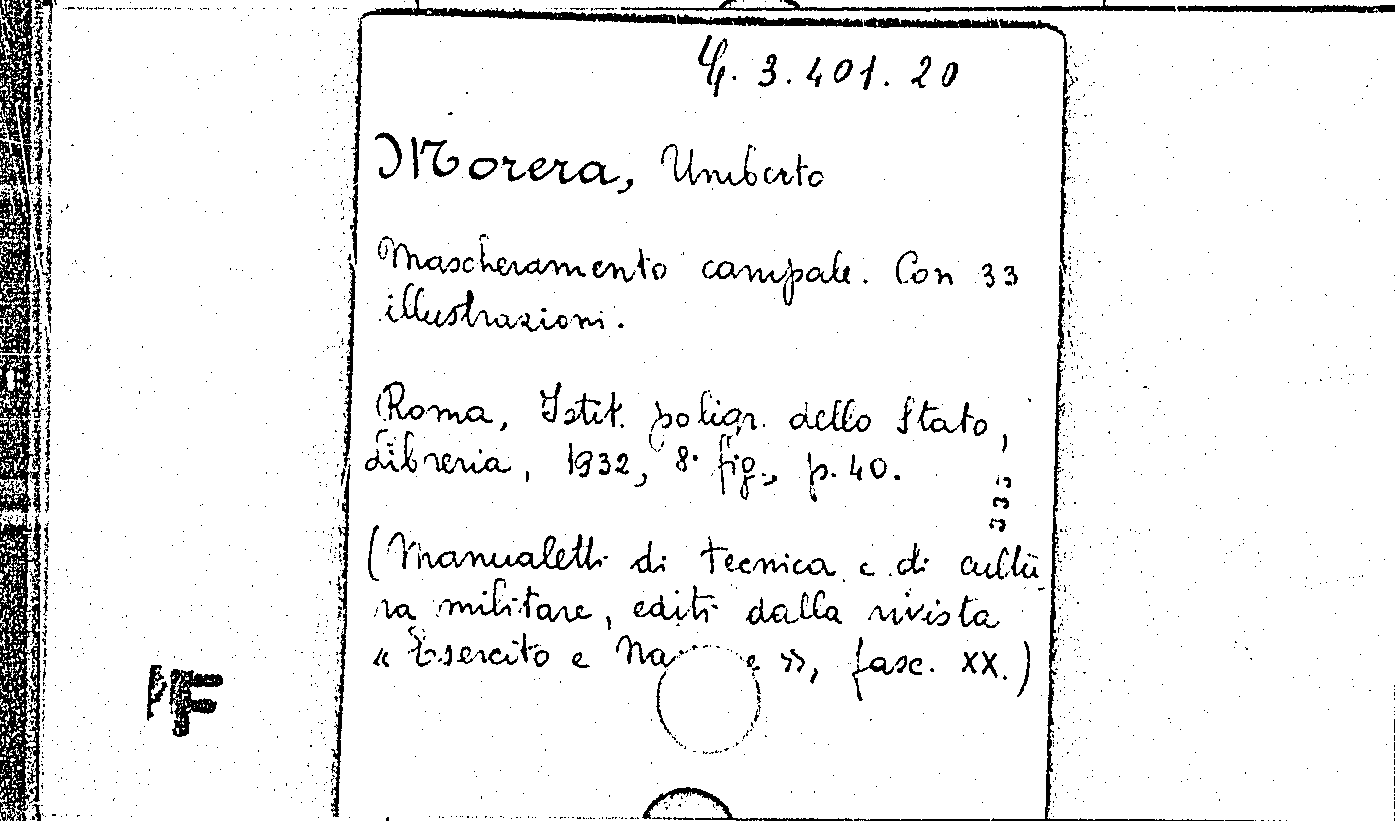 4. 3.401.20
Morera, Umberto
Mascheramento campale. Con 33
illustrazioni.
Roma, Istit. poligr. dello Stato,
Libreria, 1932, 8° fig., p. 40.
333
(Manualetti di tecnica e di cultu
ra militare, editi dalla rivista
« Esercito e », fasc. XX.)